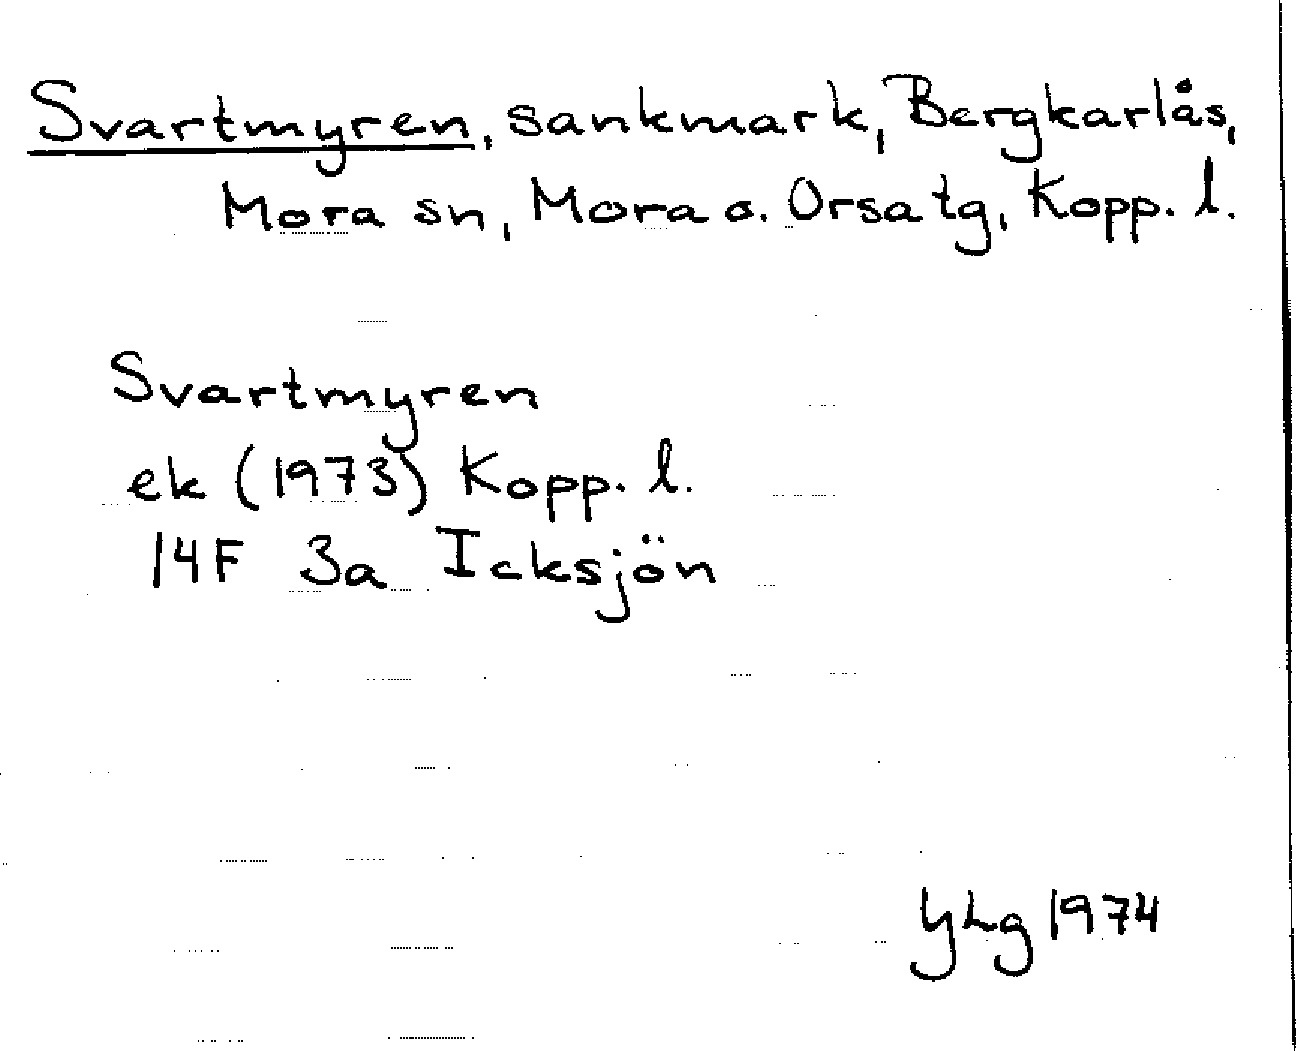 Svartmyren, sankmark, Bergkarlås,
Mora sn, Mora o. Orsa tg, Kopp. l.
Svartmyren
ek (1973) Kopp. l.
14F 3a Icksjön
YLg 1974